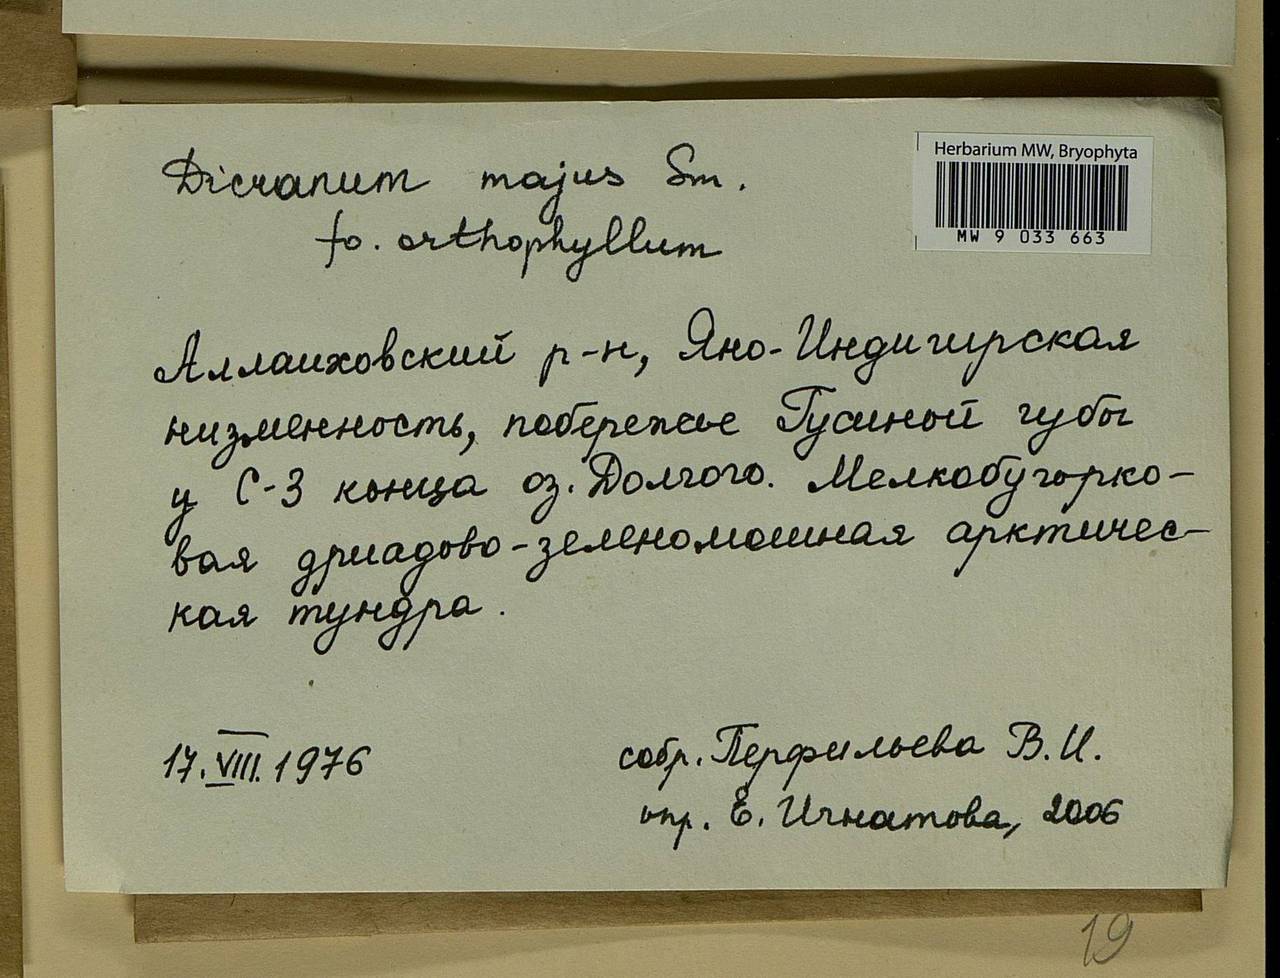 Dicranum majus Sm.
fo. orthophyllum
Herbarium MW, Bryophyta
MW 9 033 663
Аллаиховский р-н, Яно-Индигирская
низменность, побережье Гусиной губы
у С-З конца оз. Долгого. Мелкобугорко-
вая дриадово-зеленомошная арктичес-
кая тундра.
17.VIII.1976
собр. Перфильева В.И.
опр. Е. Игнатова, 2006
19